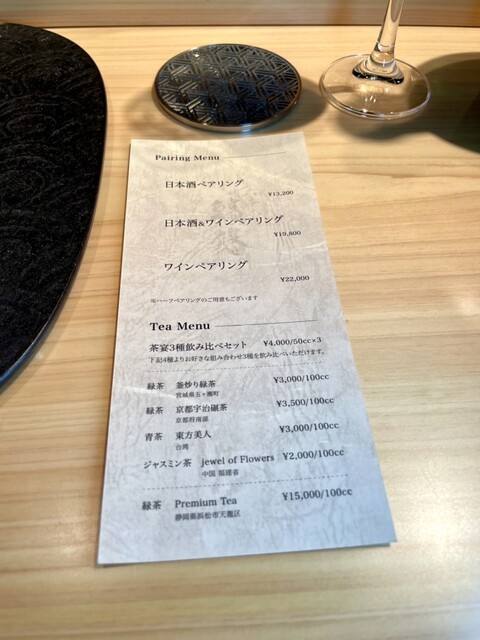 Pairing Menu
日本酒ペアリング
¥13,200
日本酒&ワインペアリング
¥19,800
ワインペアリング
¥22,000
※ハーフペアリングのご用意もございます
Tea Menu
茶宴3種飲み比べセット ¥4,000/50cc×3
下記4種よりお好きな組み合わせ3種を飲み比べいただけます。
緑茶 釜炒り緑茶 ¥3,000/100cc
宮城県五ヶ瀬町
緑茶 京都宇治碾茶 ¥3,500/100cc
京都府南部
青茶 東方美人 ¥3,000/100cc
台湾
ジャスミン茶 jewel of Flowers ¥2,000/100cc
中国 福建省
緑茶 Premium Tea ¥15,000/100cc
静岡県浜松市天龍区